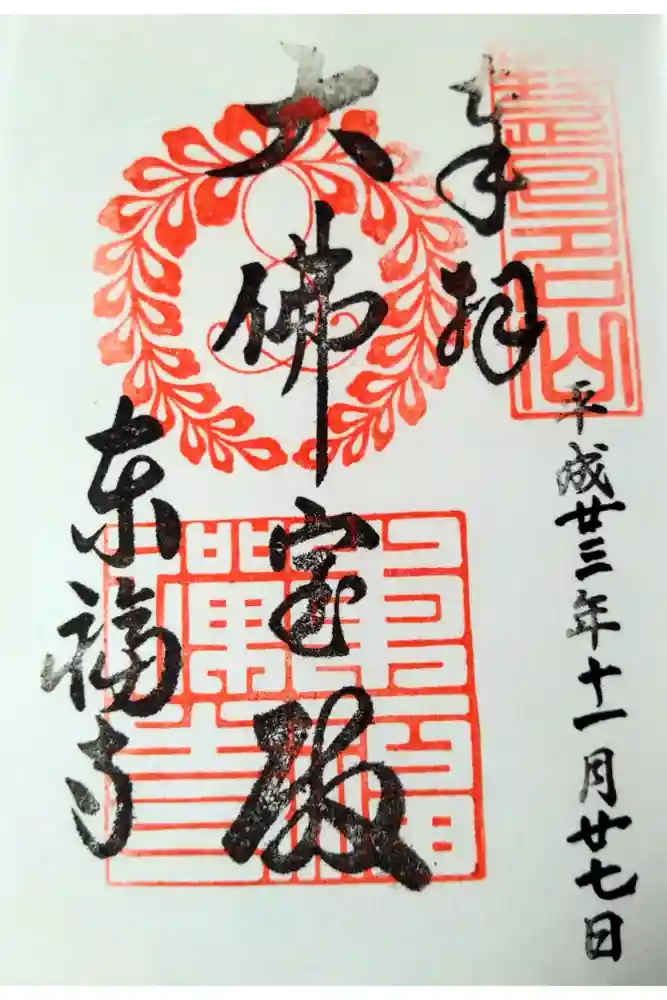 奉拝
平成廿三年十一月廿七日
大佛宝殿
東福寺